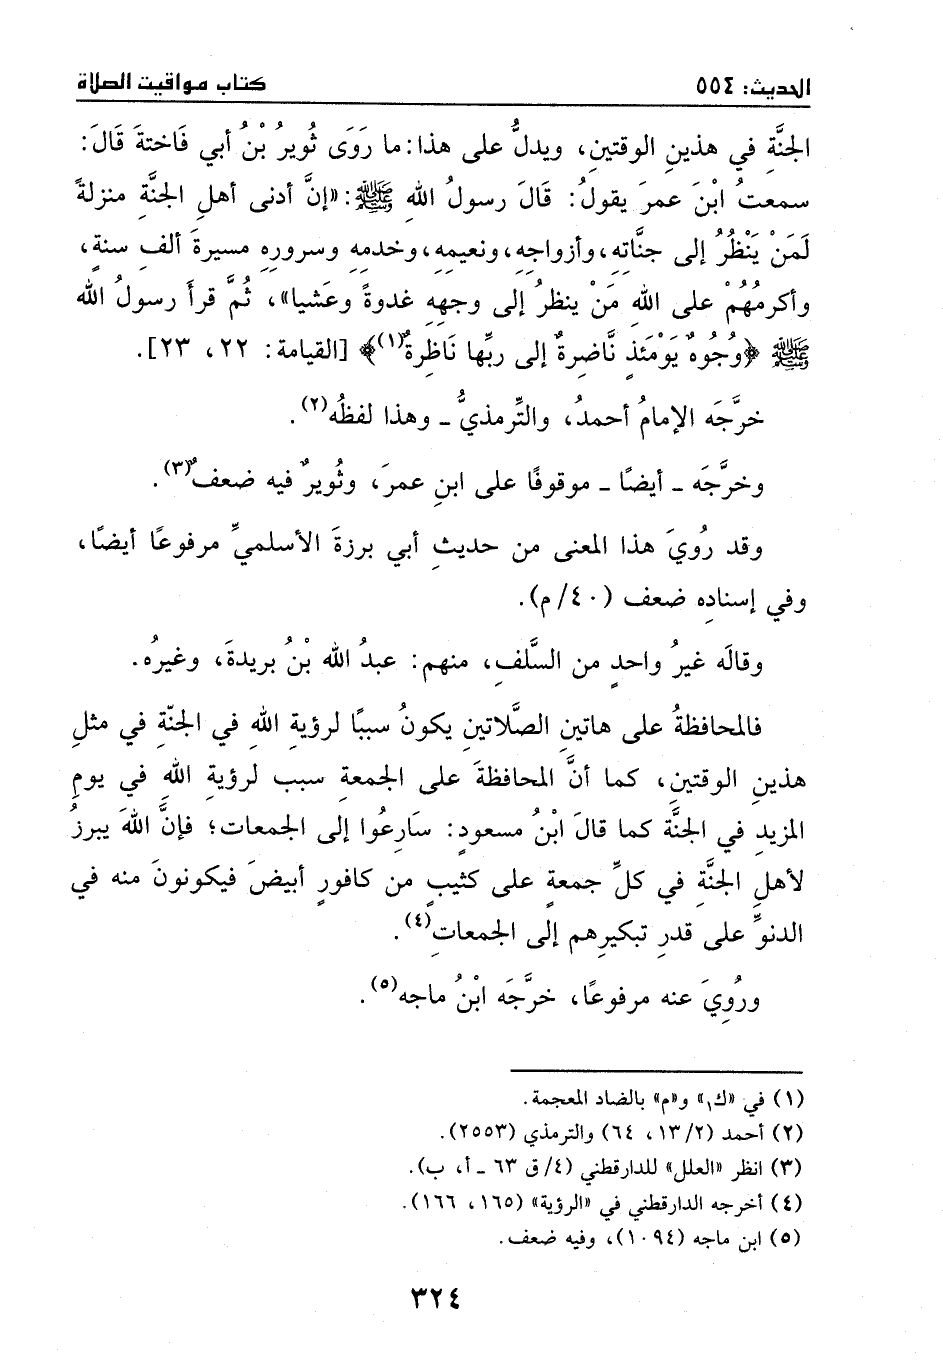 الحديث: ٥٥٤ كتاب مواقيت الصلاة
الجنَّةِ في هذينِ الوقتينِ، ويدلُّ على هذا: ما رَوَى ثُويرُ بْنُ أبي فَاختةَ قَالَ:
سمعتُ ابْنَ عمرَ يقولُ: قَالَ رسولُ اللهِ ﷺ: «إنَّ أدنى أهلِ الجنَّةِ منزلةً
لَمَنْ يَنْظُرُ إلى جنَّاتِه، وأزواجِهِ، ونعيمِهِ، وخدمِهِ وسرورِهِ مسيرةَ ألفِ سنةٍ،
وأكرمُهُمْ على اللهِ مَنْ ينظرُ إلى وجهِهِ غدوةً وعَشيا»، ثُمَّ قرأَ رسولُ الله
ﷺ ﴿وُجُوهٌ يَوْمَئذٍ نَّاضِرةٌ إلى ربِّها نَاظِرةٌ(١)﴾ [القيامة: ٢٢، ٢٣].
خرَّجَه الإمامُ أحمدُ، والتِّرمذيُّ ـ وهذا لفظُه(٢).
وخرَّجَه ـ أيضًا ـ موقوفًا على ابنِ عمرَ، وثُويرٌ فيه ضعفٌ(٣).
وقد رُويَ هذا المعنى من حديثِ أبي برزةَ الأسلميِّ مرفوعًا أيضًا،
وفي إسنادِه ضعف (٤٠/ م).
وقالَه غيرُ واحدٍ من السَّلفِ، منهم: عبدُ الله بْنُ بريدةَ، وغيرُه.
فالمحافظةُ على هاتينِ الصَّلاتينِ يكونُ سببًا لرؤيةِ اللهِ في الجنّةِ في مثلِ
هذينِ الوقتينِ، كما أنَّ المحافظةَ على الجمعةِ سبب لرؤيةِ اللهِ في يومِ
المزيدِ في الجنَّة كما قالَ ابْنُ مسعودٍ: سَارِعُوا إلى الجمعات؛ فإنَّ اللهَ يبرزُ
لأهلِ الجنَّةِ في كلِّ جمعةٍ على كثيبٍ من كافورٍ أبيضَ فيكونونَ منه في
الدنوِّ على قدرِ تبكيرِهم إلى الجمعاتِ(٤).
ورُوِيَ عنه مرفوعًا، خرَّجَه ابْنُ ماجه(٥).
(١) في «ك١» و«م» بالضاد المعجمة.
(٢) أحمد (٢/ ١٣، ٦٤) والترمذي (٢٥٥٣).
(٣) انظر «العلل» للدارقطني (٤/ ق ٦٣ ـ أ، ب).
(٤) أخرجه الدارقطني في «الرؤية» (١٦٥، ١٦٦).
(٥) ابن ماجه (١٠٩٤)، وفيه ضعف.
٣٢٤